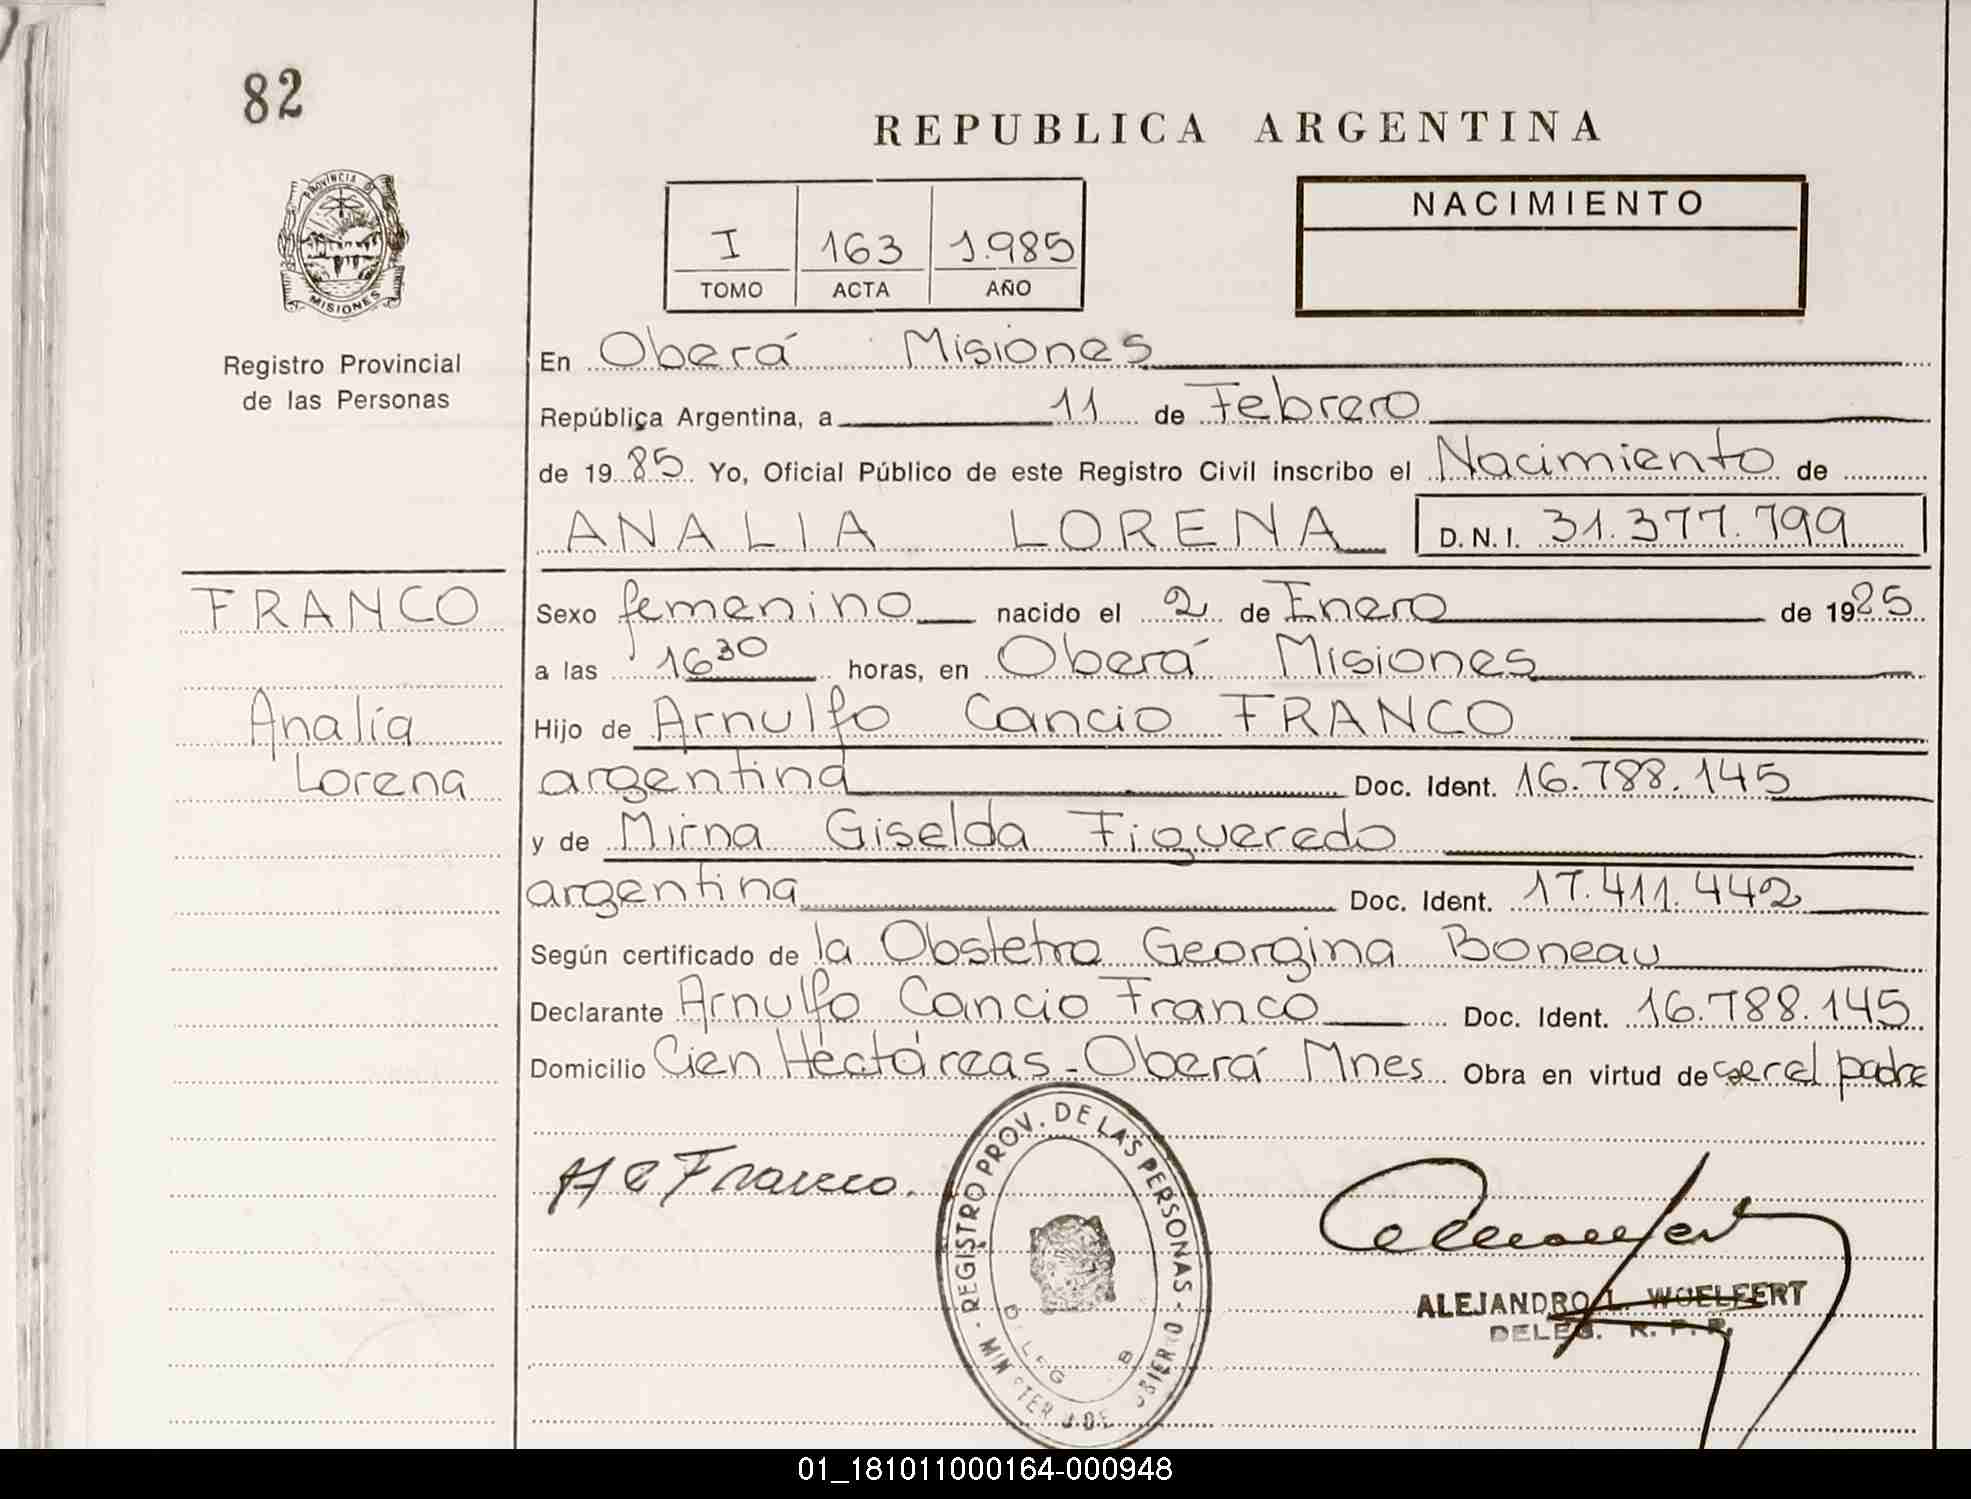 82
REPUBLICA ARGENTINA
PROVINCIA DE
MISIONES
NACIMIENTO
I 163 1.985
TOMO ACTA AÑO
Registro Provincial
de las Personas
En Oberá Misiones
República Argentina, a 11 de Febrero
de 19 85 Yo, Oficial Público de este Registro Civil inscribo el Nacimiento de
ANALIA LORENA D.N.I. 31.377.799
FRANCO
Analía
Lorena
Sexo femenino nacido el 2 de Enero de 1985
a las 16 30 horas, en Oberá Misiones
Hijo de Arnulfo Cancio FRANCO
argentina Doc. Ident. 16.788.145
y de Mirna Giselda Figueredo
argentina Doc. Ident. 17.411.442
Según certificado de la Obstetra Georgina Boneau
Declarante Arnulfo Cancio Franco Doc. Ident. 16.788.145
Domicilio Cien Héctáreas - Oberá Mnes Obra en virtud de ser el padre
A C Franco.
REGISTRO PROV. DE LAS PERSONAS
ALEJANDRO L. WOELFERT
DELEG. R. P. P.
01_181011000164-000948